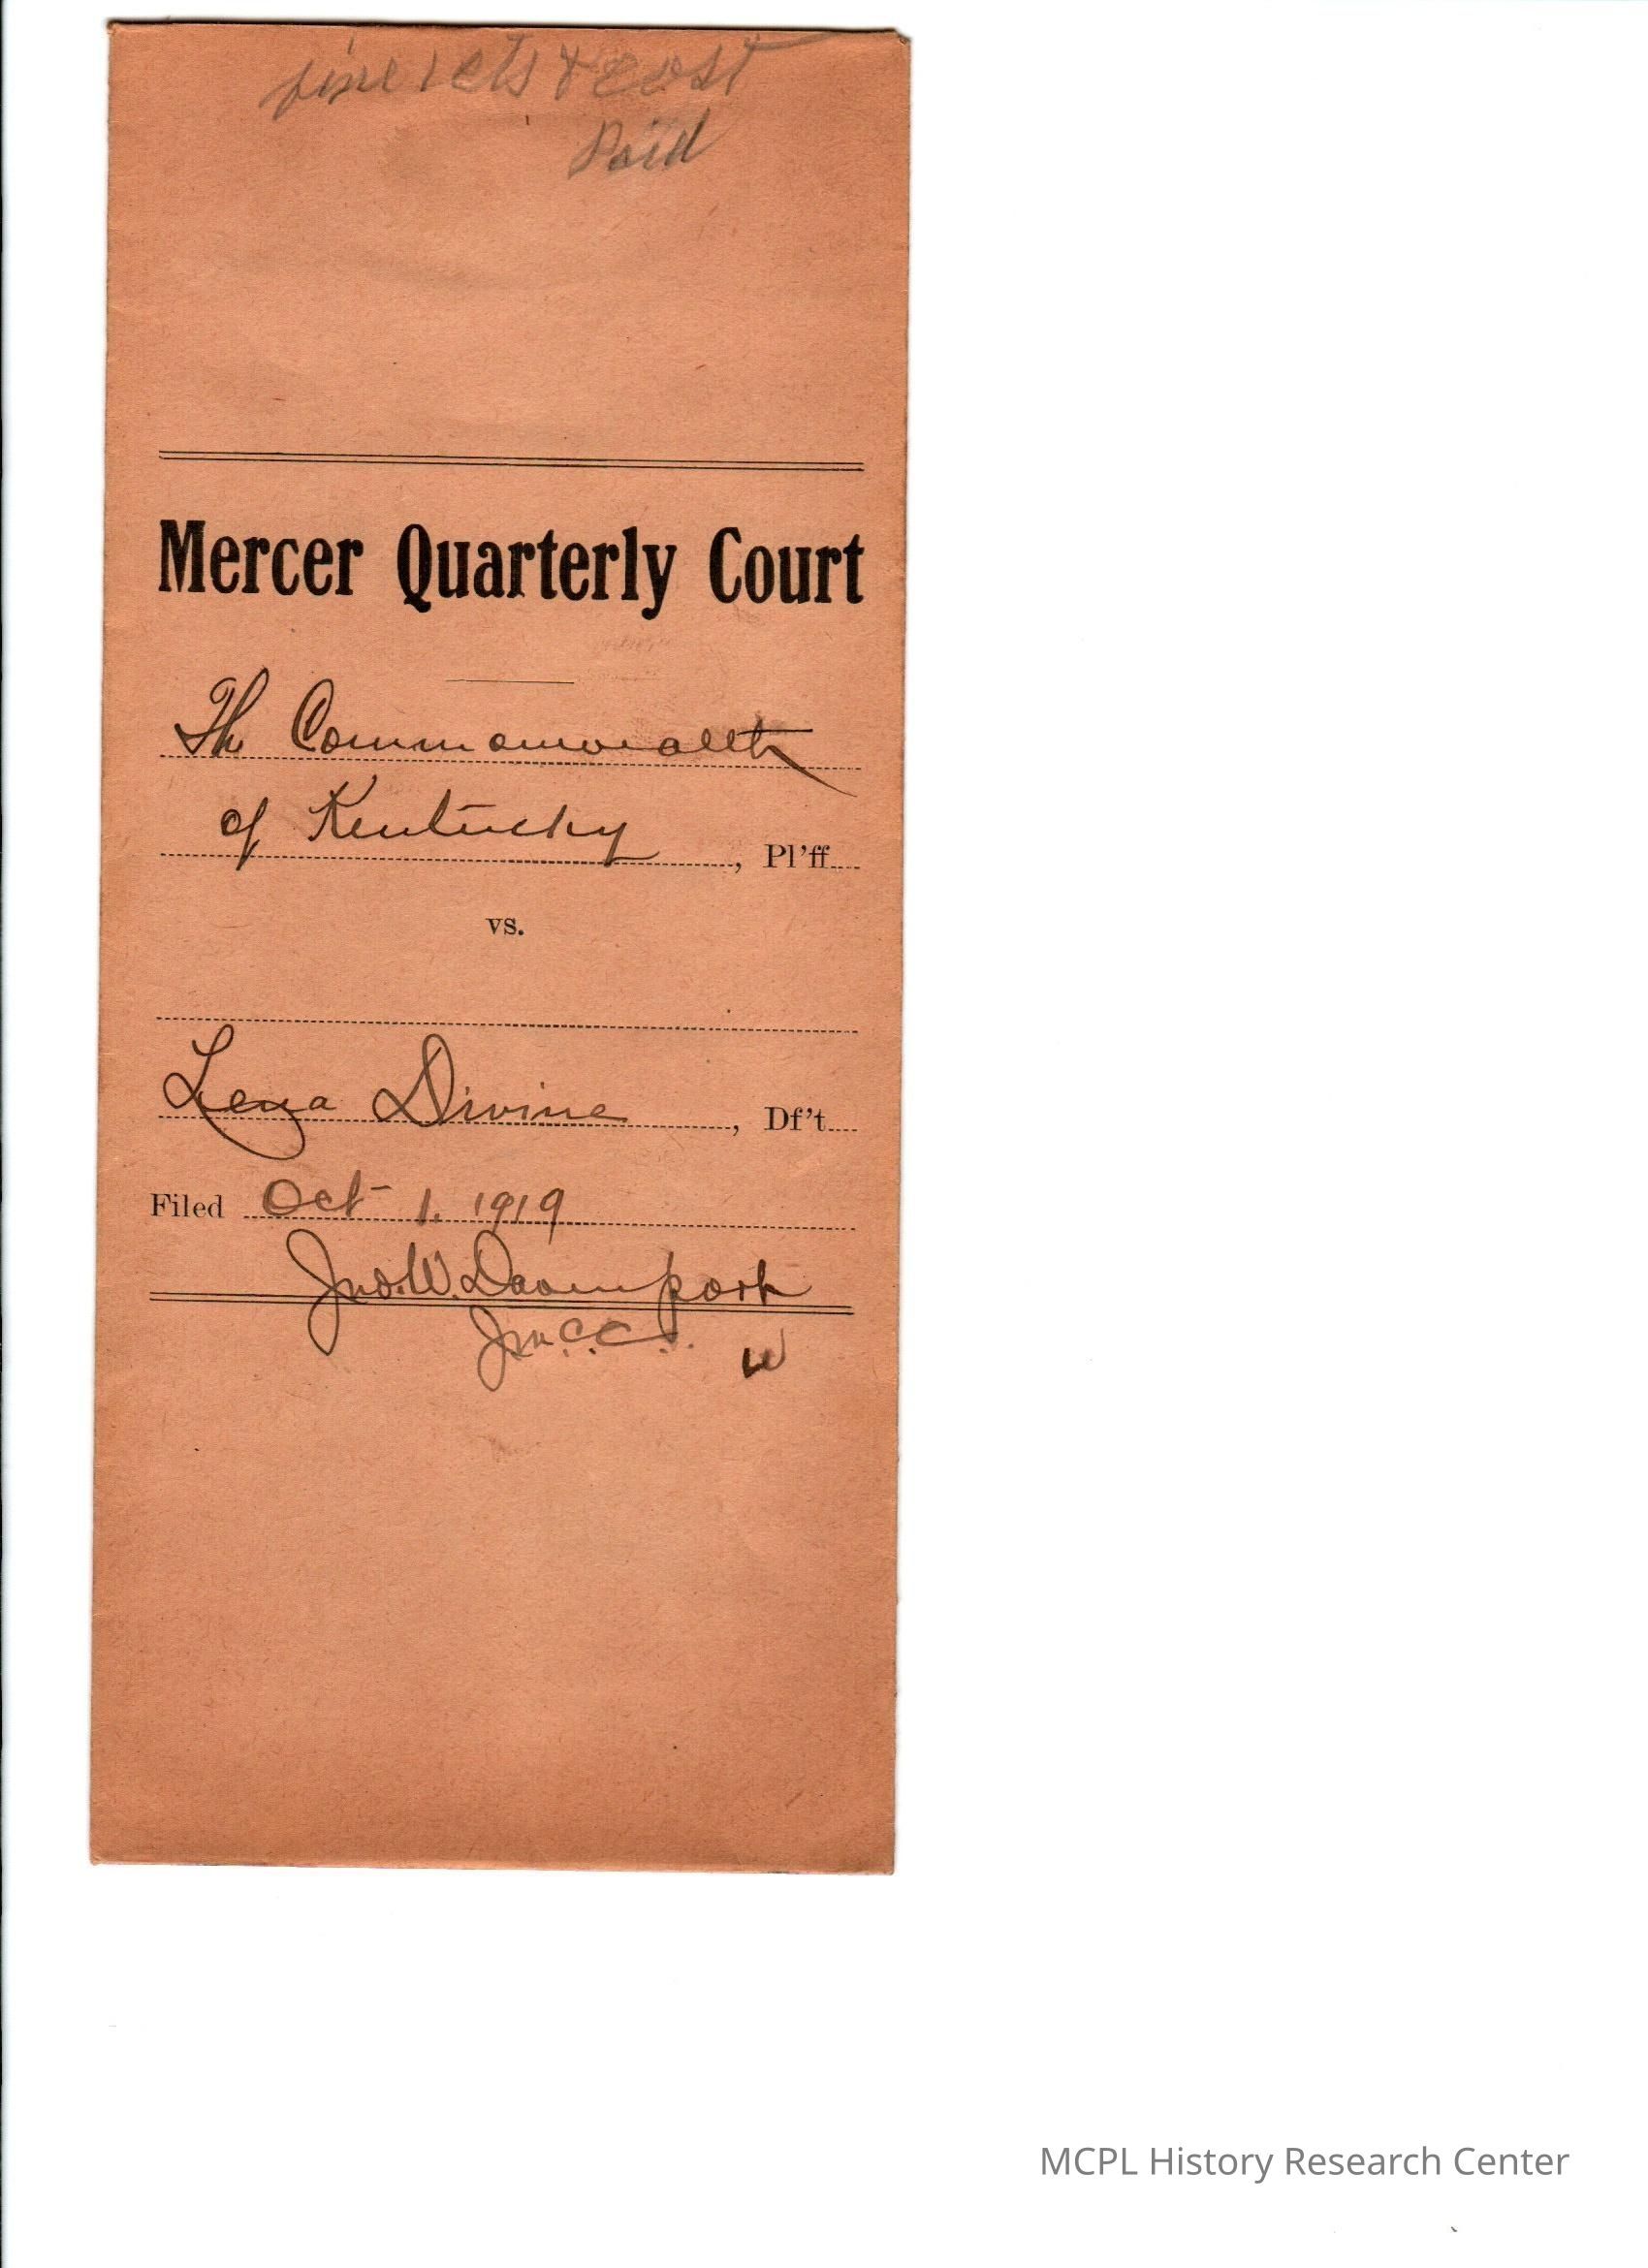 fine 1 cts & cost
Paid
Mercer Quarterly Court
Th Commonwealth
of Kentucky, Pl'ff
vs.
Divine, Df't
Filed Oct 1. 1919
Jno. W. Davenport
J m. C. C.
W
MCPL History Research Center